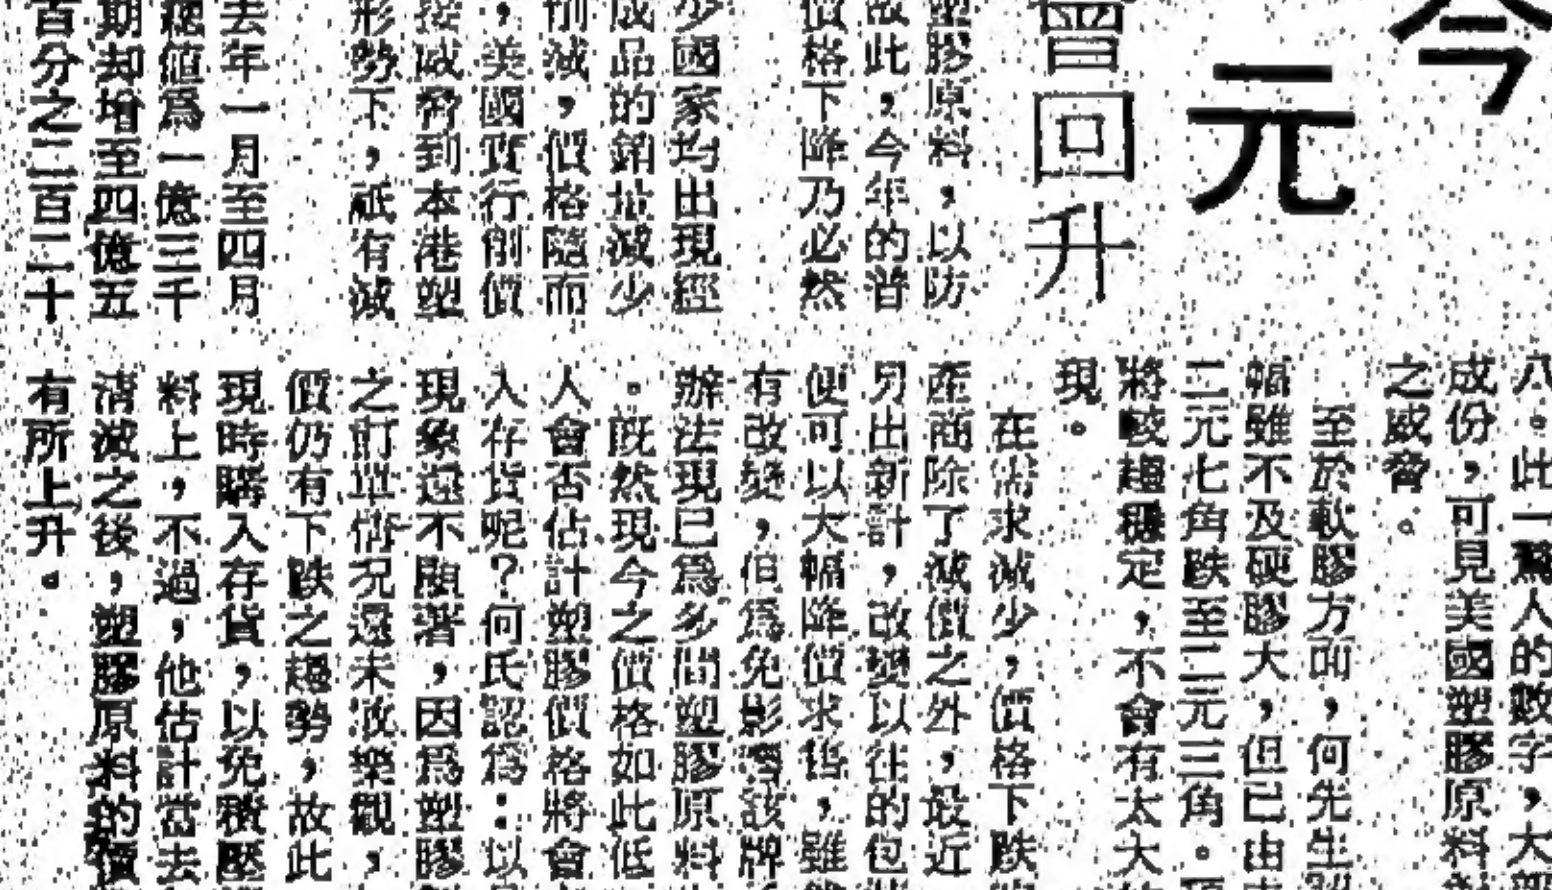 今
元
曾回升
塑膠原料，以防
故此，今年的普
價格下降乃必然
少國家均出現經
成品的銷量減少
削減，價格隨而
，美國實行削價
接威脅到本港塑
形勢下，祇有減
去年一月至四月
總值爲一億三千
期却增至四億五
百分之二百二十
八。此一驚人的數字，大部
成份，可見美國塑膠原料
之威脅。
至於軟膠方面，何先生
幅雖不及硬膠大，但已由
二元七角跌至二元三角。
將較趨穩定，不會有太大
現。
在需求減少，價格下跌
產商除了減價之外，最近
另出新計，改變以往的包
便可以大幅降價求售，雖
有改變，但爲免影響該牌
辦法現已爲多間塑膠原料
。既然現今之價格如此低
人會否估計塑膠價格將會
入存貨呢？何氏認爲：以
現象還不顯著，因爲塑膠
之訂單情况還未許樂觀，
價仍有下跌之趨勢，故此
現時購入存貨，以免積壓
料上，不過，他估計當去
清減之後，塑膠原料的價
有所上升。